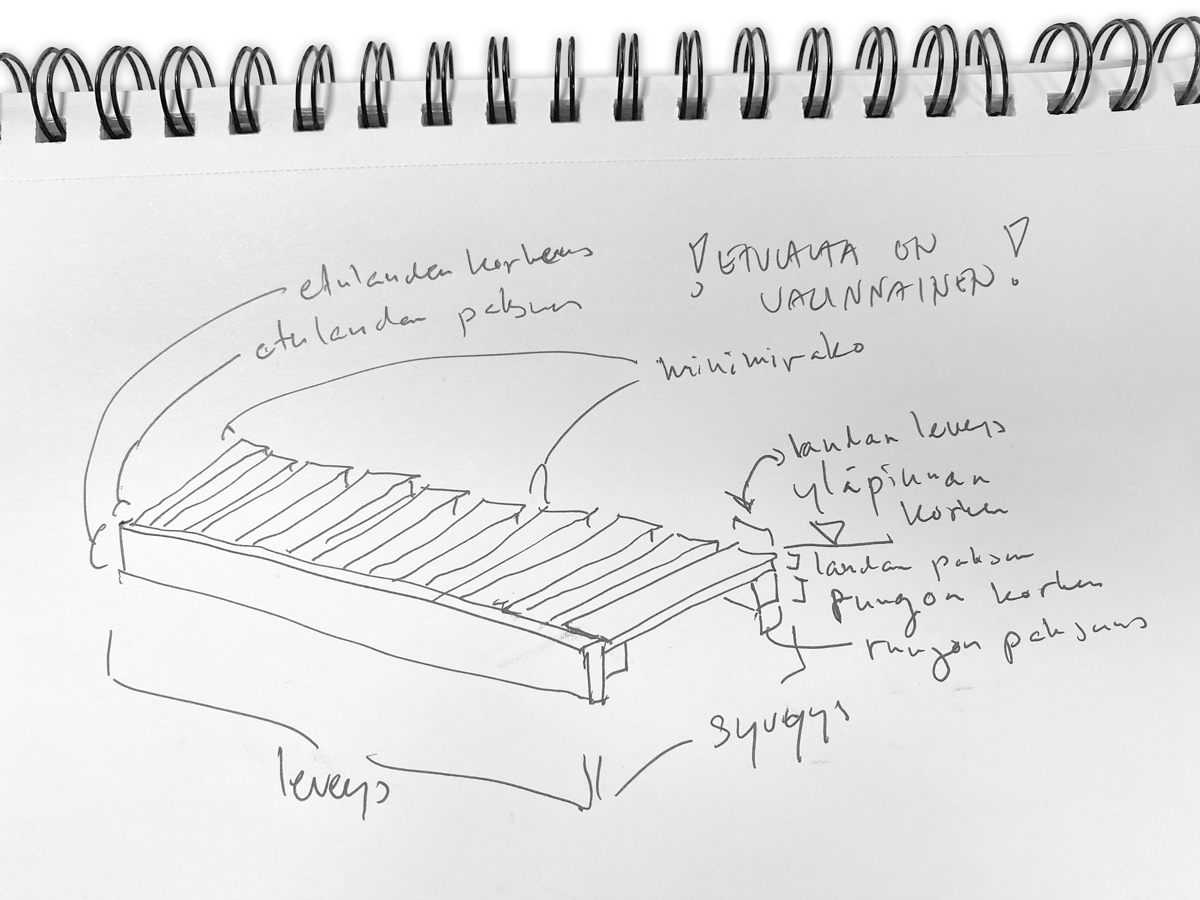 etulaudan korkeus
etulaudan paksuus
! ETULAUTA ON
VALINNAINEN !
minimirako
laudan leveys
yläpinnan
korkeu
laudan paksuu
rungon korkeu
rungon paksuus
syvyys
leveys